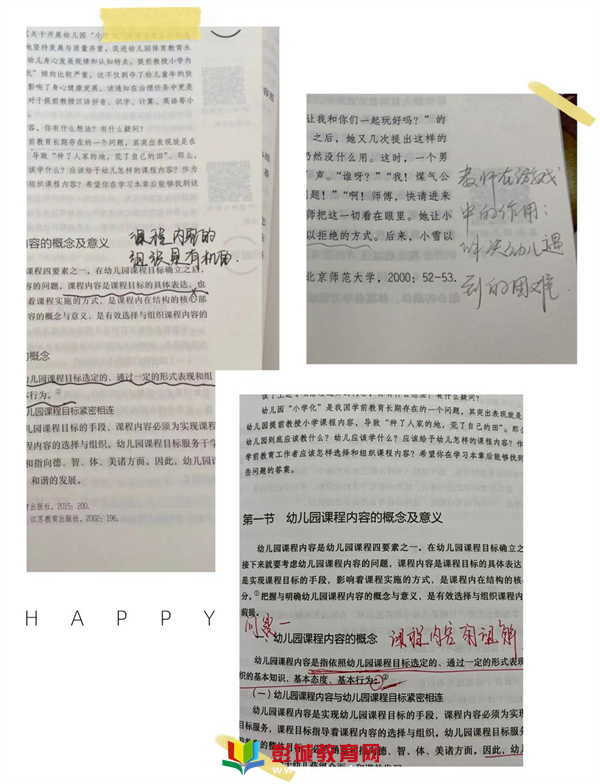 关于开展幼儿园“小学
地坚持发展与质量并重，促进幼儿园保育教育水
幼儿身心发展规律和认知特点，提前教授小学内
化”倾向比较严重，这不仅剥夺了幼儿童年的快
影响了身心健康发展。该通知在治理任务中更是
对于提前教授汉语拼音、识字、计算、英语等小
容，你有什么想法？有什么疑问？
前教育长期存在的一个问题，其突出表现就是在
导致“种了人家的地，荒了自己的田”。那么，
该学什么？应该给予幼儿怎样的课程内容？作为
组织课程内容？希望你在学习本章后能够找到这
课程内容的
组织具有机
内容的概念及意义
课程四要素之一，在幼儿园课程目标确立之后，
容的问题，课程内容是课程目标的具体表达，也
着课程实施的方式，是课程内在结构的核心部
容的概念与意义，是有效选择与组织课程内容的
的概念
幼儿园课程目标选定的、通过一定的形式表现和组
本行为。②
儿园课程目标紧密相连
课程目标的手段，课程内容必须为实现课程
程内容的选择与组织。幼儿园课程目标服务于学
和指向德、智、体、美诸方面。因此，幼儿园
和谐的发展。
育出版社，2015：200.
江苏教育出版社，2002：196.
让我和你们一起玩好吗？”的
之后，她又几次提出这样的
仍然没什么用。这时，一个男
声。“谁呀？”“我！煤气公
问题！”“啊！师傅，快请进来
师把这一切看在眼里。她让小
以拒绝的方式。后来，小雪以
北京师范大学，2000：52-53.
教师在游戏
中的作用：
解决幼儿遇
到的困难.
幼儿园“小学化”是我国学前教育长期存在的一个问题，其突出表现就是
幼儿园提前教授小学课程内容，导致“种了人家的地，荒了自己的田”。那么
幼儿园到底应该教什么？幼儿应该学什么？应该给予幼儿怎样的课程内容？作
学前教育工作者应该怎样选择和组织课程内容？希望你在学习本章后能够找到
些问题的答案。
第一节 幼儿园课程内容的概念及意义
幼儿园课程内容是幼儿园课程四要素之一，在幼儿园课程目标确立之
接下来就要考虑幼儿园课程内容的问题，课程内容是课程目标的具体表达
是实现课程目标的手段，影响着课程实施的方式，是课程内在结构的核
分。①把握与明确幼儿园课程内容的概念与意义，是有效选择与组织课程内
前提。
一、幼儿园课程内容的概念
课程内容有组织
幼儿园课程内容是指依照幼儿园课程目标选定的、通过一定的形式表现
织的基本知识、基本态度、基本行为。②
（一）幼儿园课程内容与幼儿园课程目标紧密相连
幼儿园课程内容是实现幼儿园课程目标的手段，课程内容必须为实现
目标服务，课程目标指导着课程内容的选择与组织。幼儿园课程目标服务
德、智、体、美诸方面。因此，幼儿
HAPPY
彭城教育网